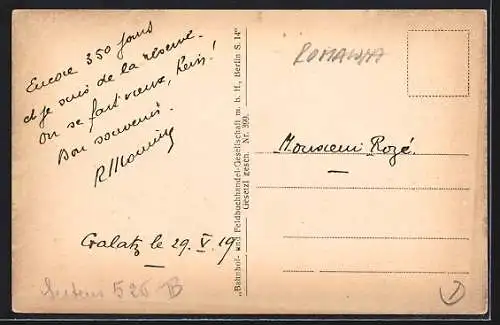 Encore 350 jours
et je suis de la réserve.
on se fait vieux, hein!
Bon souvenir.
Galatz le 29. V. 19
"Bahnhof- und Feldbuchhandel-Gesellschaft m. b. H., Berlin S. 14"
Gesetzl gesch. Nr. 399.
ROMANIA
Monsieur Rozé.
526 B